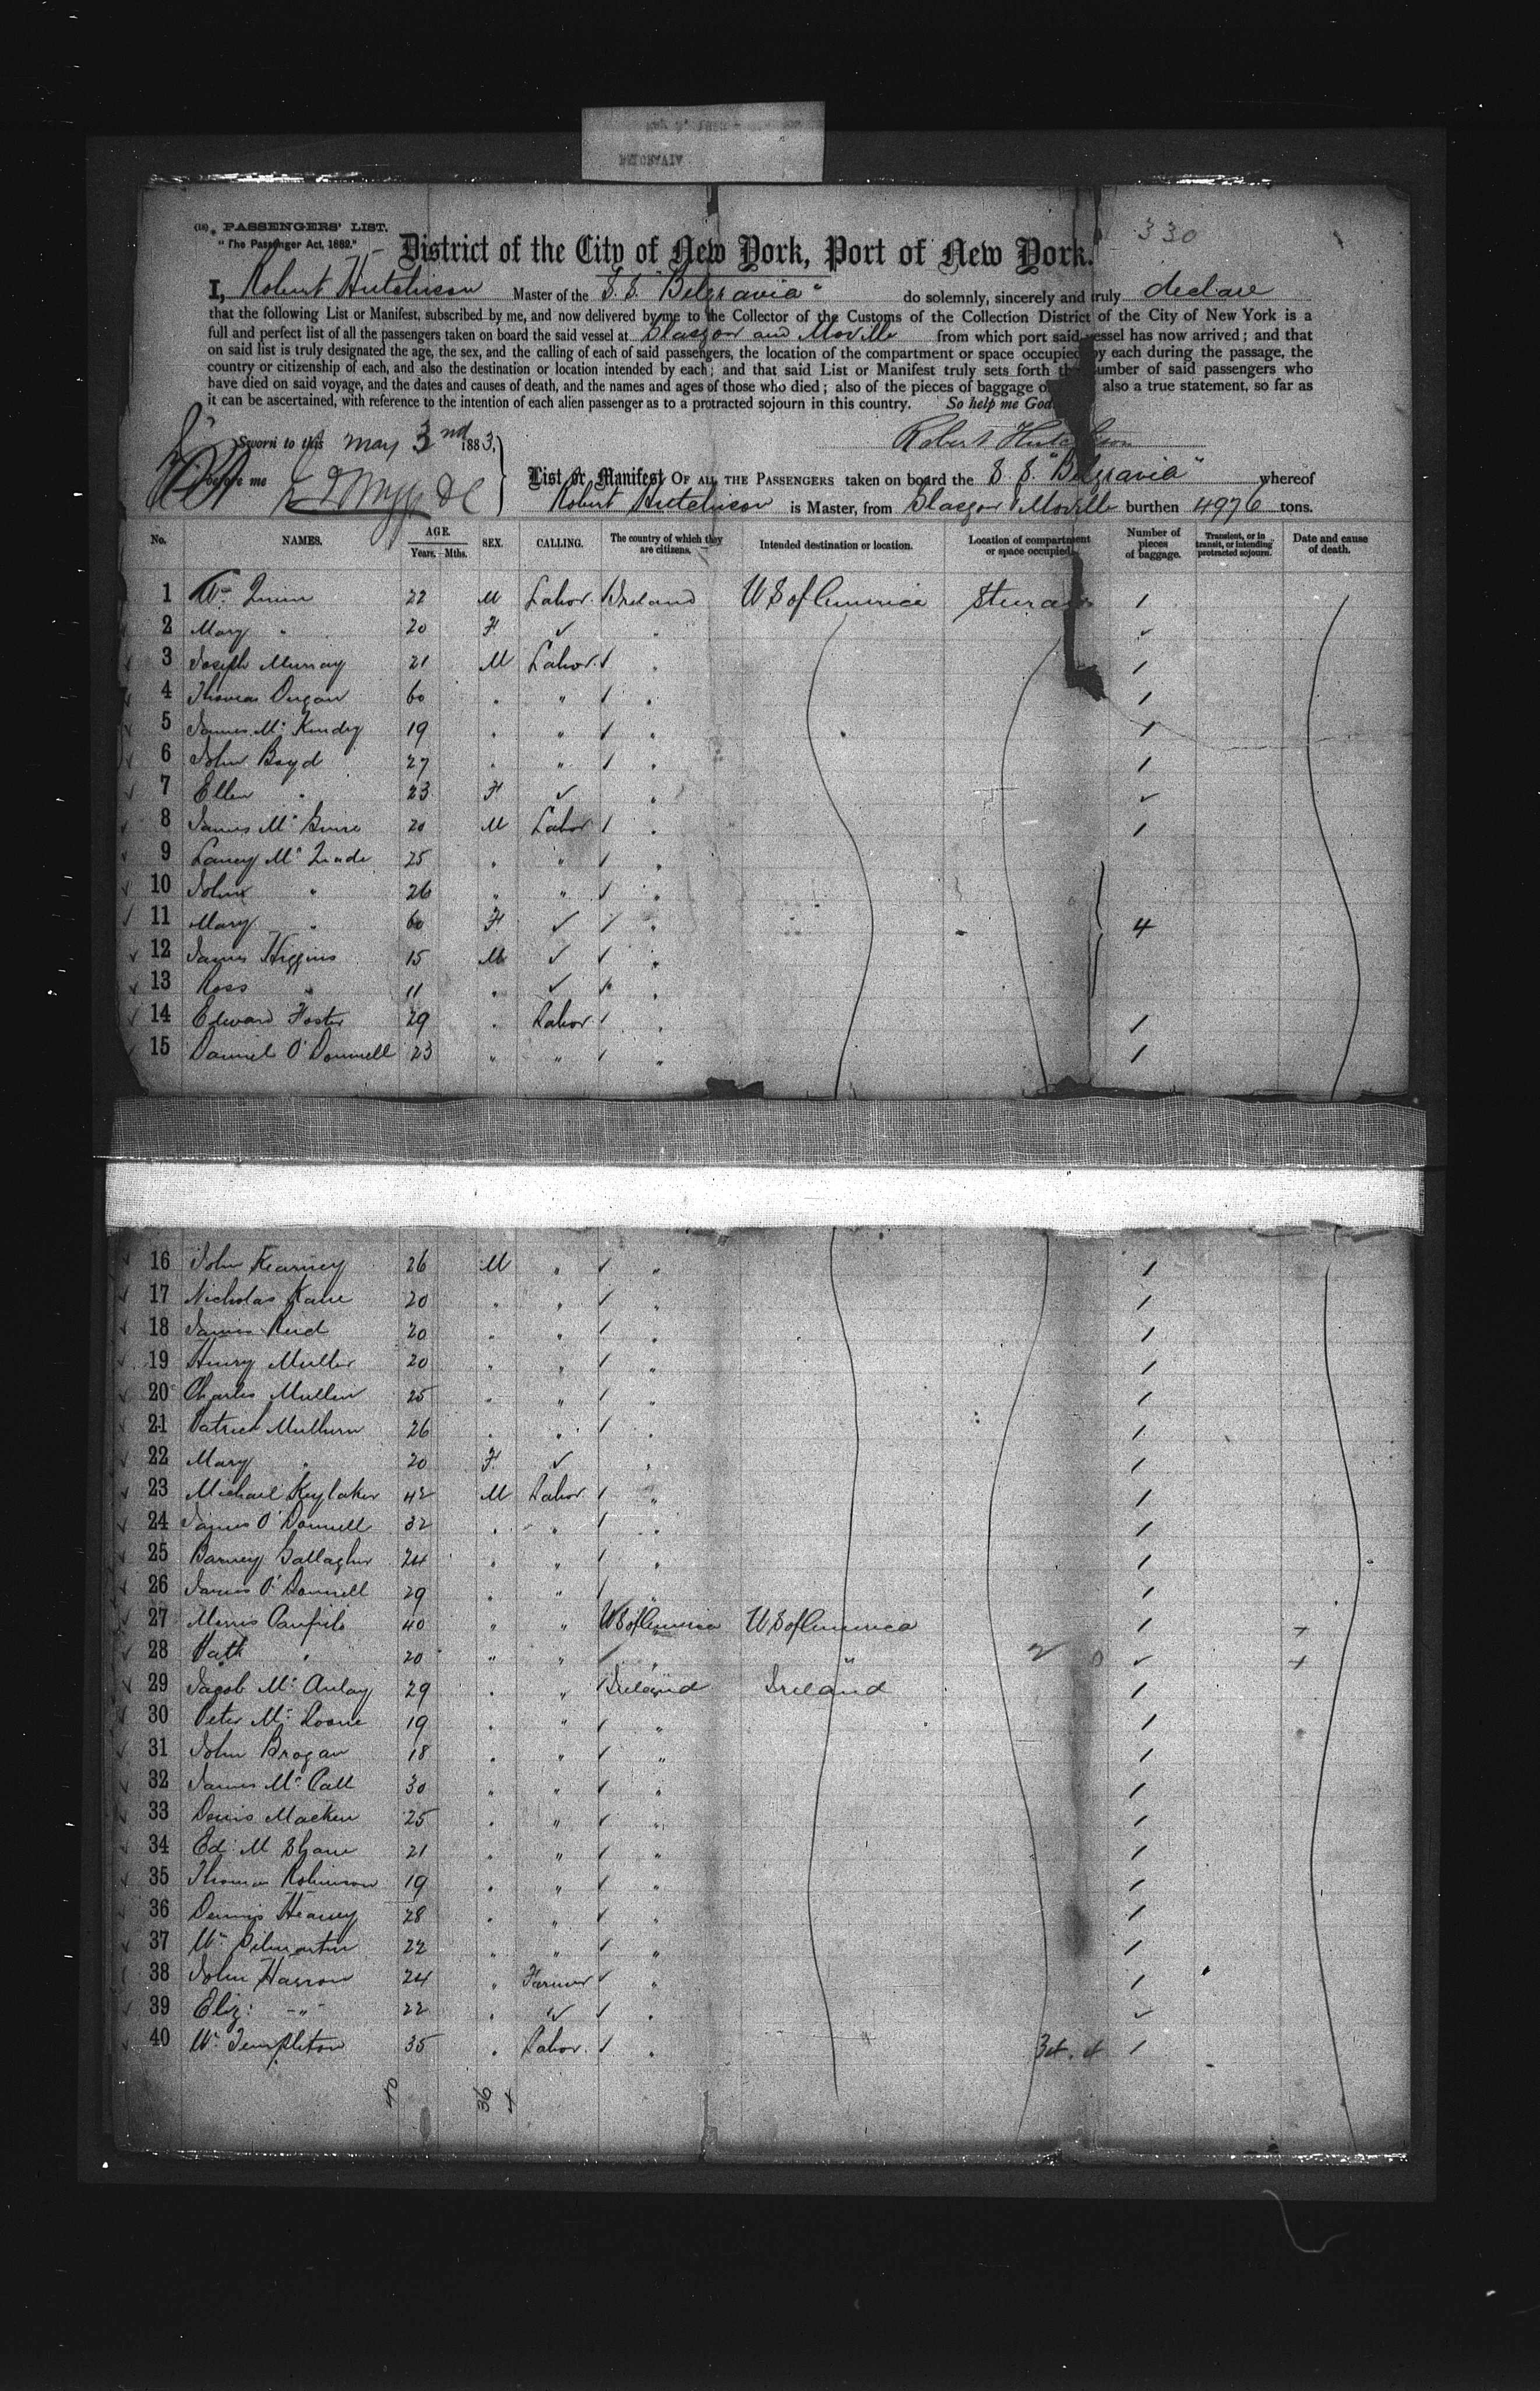 BELGRAVIA
330
(18) PASSENGERS' LIST.
"The Passenger Act, 1882."
District of the City of New York, Port of New York.
I, Robert Hutchison Master of the S.S. "Belgravia" do solemnly, sincerely and truly declare
that the following List or Manifest, subscribed by me, and now delivered by me to the Collector of the Customs of the Collection District of the City of New York is a
full and perfect list of all the passengers taken on board the said vessel at Glasgow and Moville from which port said vessel has now arrived; and that
on said list is truly designated the age, the sex, and the calling of each of said passengers, the location of the compartment or space occupied by each during the passage, the
country or citizenship of each, and also the destination or location intended by each; and that said List or Manifest truly sets forth the number of said passengers who
have died on said voyage, and the dates and causes of death, and the names and ages of those who died; also of the pieces of baggage of also a true statement, so far as
it can be ascertained, with reference to the intention of each alien passenger as to a protracted sojourn in this country. So help me God
Sworn to this May 3nd 1883, Robert Hutchison
before me
List or Manifest OF ALL THE PASSENGERS taken on board the S.S. "Belgravia" whereof
Robert Hutchison is Master, from Glasgow & Moville burthen 4976 tons.
No. NAMES. AGE. Years. Mths. SEX. CALLING. The country of which they are citizens. Intended destination or location. Location of compartment or space occupied. Number of pieces of baggage. Transient, or in transit, or intending protracted sojourn. Date and cause of death.
1 Wm Quinn 22 M Labor. Ireland U S of America Steerage 1
2 Mary " 20 F ✓ " ✓
3 Joseph Murray 21 M Labor. " 1
4 Thomas Dugan 60 " " " 1
5 James Mc Kendry 19 " " " 1
6 John Boyd 27 " " " 1
7 Ellen " 23 F ✓ " ✓
8 James Mc Guire 20 M Labor " 1
9 Laney Mc Quade 25 " " "
10 John " 26 " " "
11 Mary " 60 F ✓ " 4
12 James Higgins 15 M ✓ "
13 Ross " 11 " ✓ "
14 Edward Foster 29 " Labor " 1
15 Daniel O'Donnell 23 " " " 1
16 John Kearney 26 M " " 1
17 Nicholas Kane 20 " " " 1
18 James Reid 20 " " " 1
19 Henry Mullen 20 " " " 1
20 Charles Mullen 25 " " " 1
21 Patrick Mulhern 26 " " " 1
22 Mary " 20 F ✓ " 1
23 Michael 42 M Labor " 1
24 James O'Donnell 32 " " " 1
25 Barney Gallagher 24 " " " 1
26 James O'Donnell 29 " " " 1
27 Morris 40 " " U S of America U S of America 1 +
28 Patk " 20 " " " " 2 0 ✓ +
29 Jacob Mc Aulay 29 " " Ireland Ireland 1
30 Peter Mc Loone 19 " " " 1
31 John Brogan 18 " " " 1
32 James Mc Call 30 " " " 1
33 Denis Macken 25 " " " 1
34 Ed. M Shane 21 " " " 1
35 Thomas Robinson 19 " " " 1
36 Dennis Heaney 28 " " " 1
37 Wm Gilmartin 22 " " " 1
38 John Harron 24 " Farmer " 1
39 Eliz: -"- 22 " ✓ " ✓
40 Wm Templeton 35 " Labor. " 34. 4 1
40 36 4